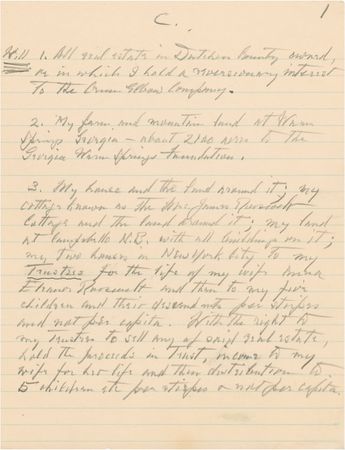 1
C.
Will 1. All real estate in Dutchess County owned,
or in which I hold a reversionary interest
to the Crum Elbow Company.
2. My farm and mountain land at Warm
Springs Georgia - about 2100 acres to the
Georgia Warm Springs Foundation.
3. My house and the land around it; my
cottage known as the James Roosevelt
Cottage and the land around it; my land
at Campobello N.B. with all buildings on it;
my two houses in New York City to my
Trustees for the life of my wife Anna
Eleanor Roosevelt and then to my five
children and their descendants per stirpes
and not per capita. With the right to
my trustees to sell any of said real estate,
hold the proceeds in Trust, income to my
wife for her life and then distribution to
5 children etc per stirpes & not per capita.